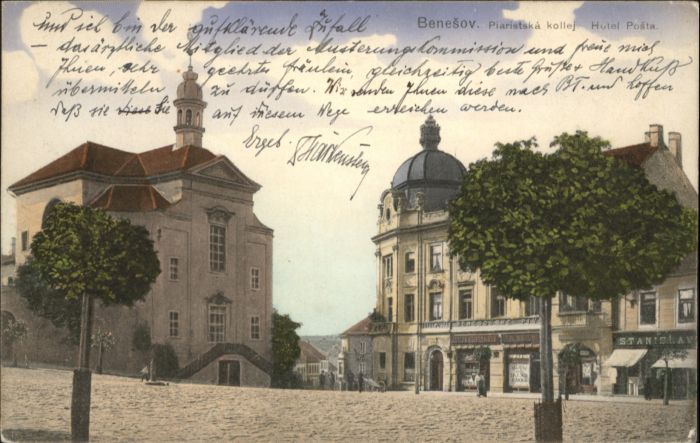 Benešov. Piaristská kollej Hotel Pošta.
und ich bin der aufklärende Zufall
— das ärztliche Mitglied der Musterungskommission und freue mich
Ihnen, sehr geehrtes Fräulein, gleichzeitig beste Grüße & Handkuß
übermitteln zu dürfen. Wir senden Ihnen diese nach BT. und hoffen
daß sie diese Sie auf diesem Wege erreichen werden.
Ergeb.
STANISLAV